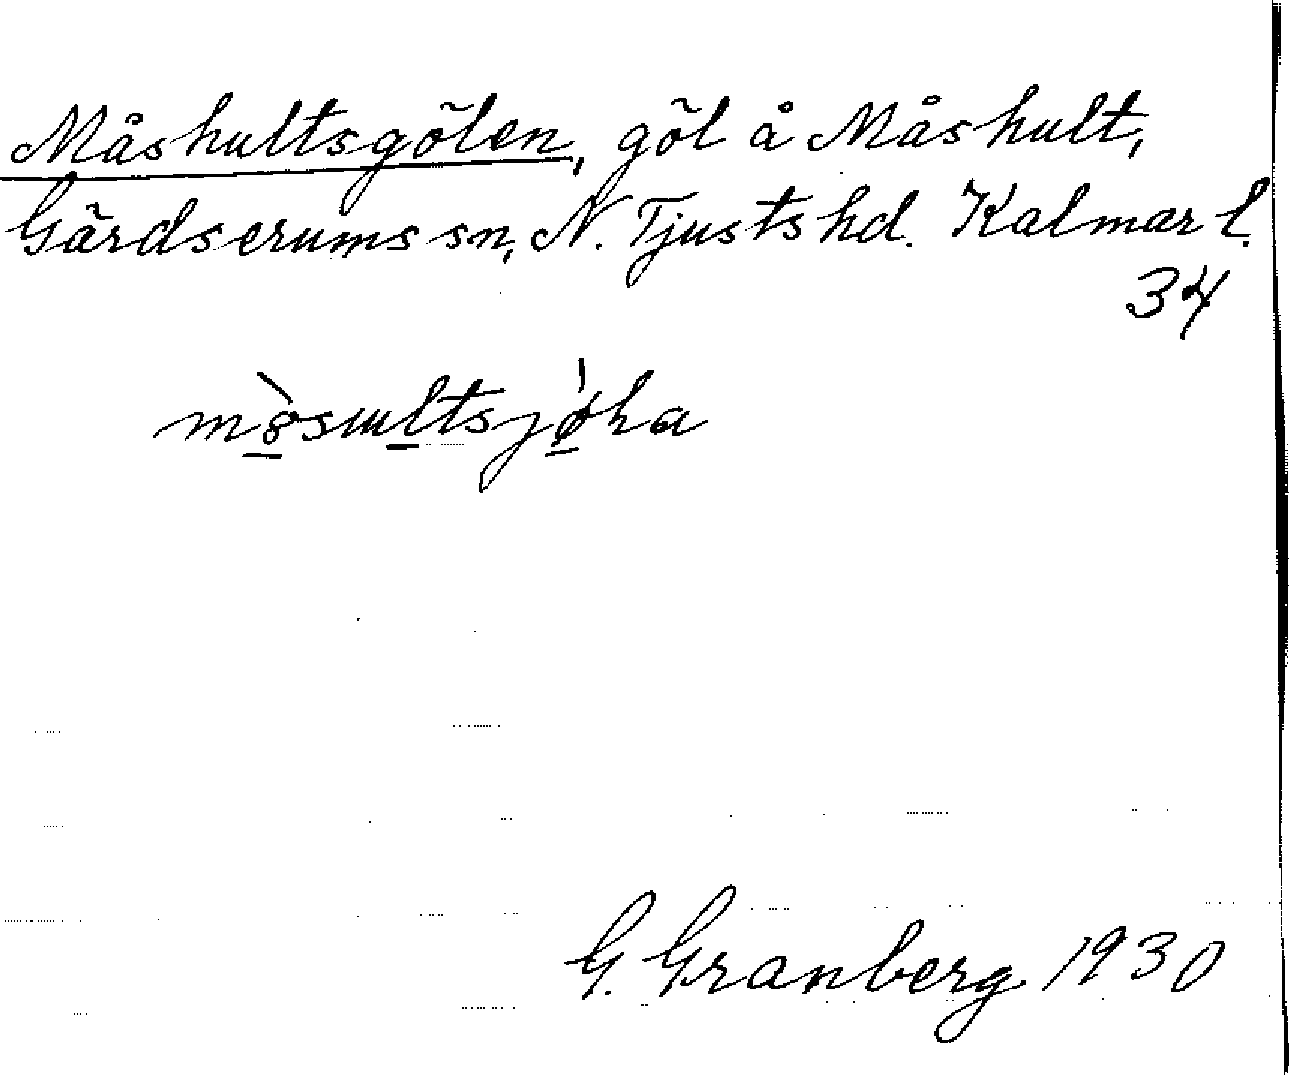 Måshultsgölen, göl å Måshult,
Gärdserums sn, N. Tjusts hd. Kalmar l.
34
G. Granberg 1930